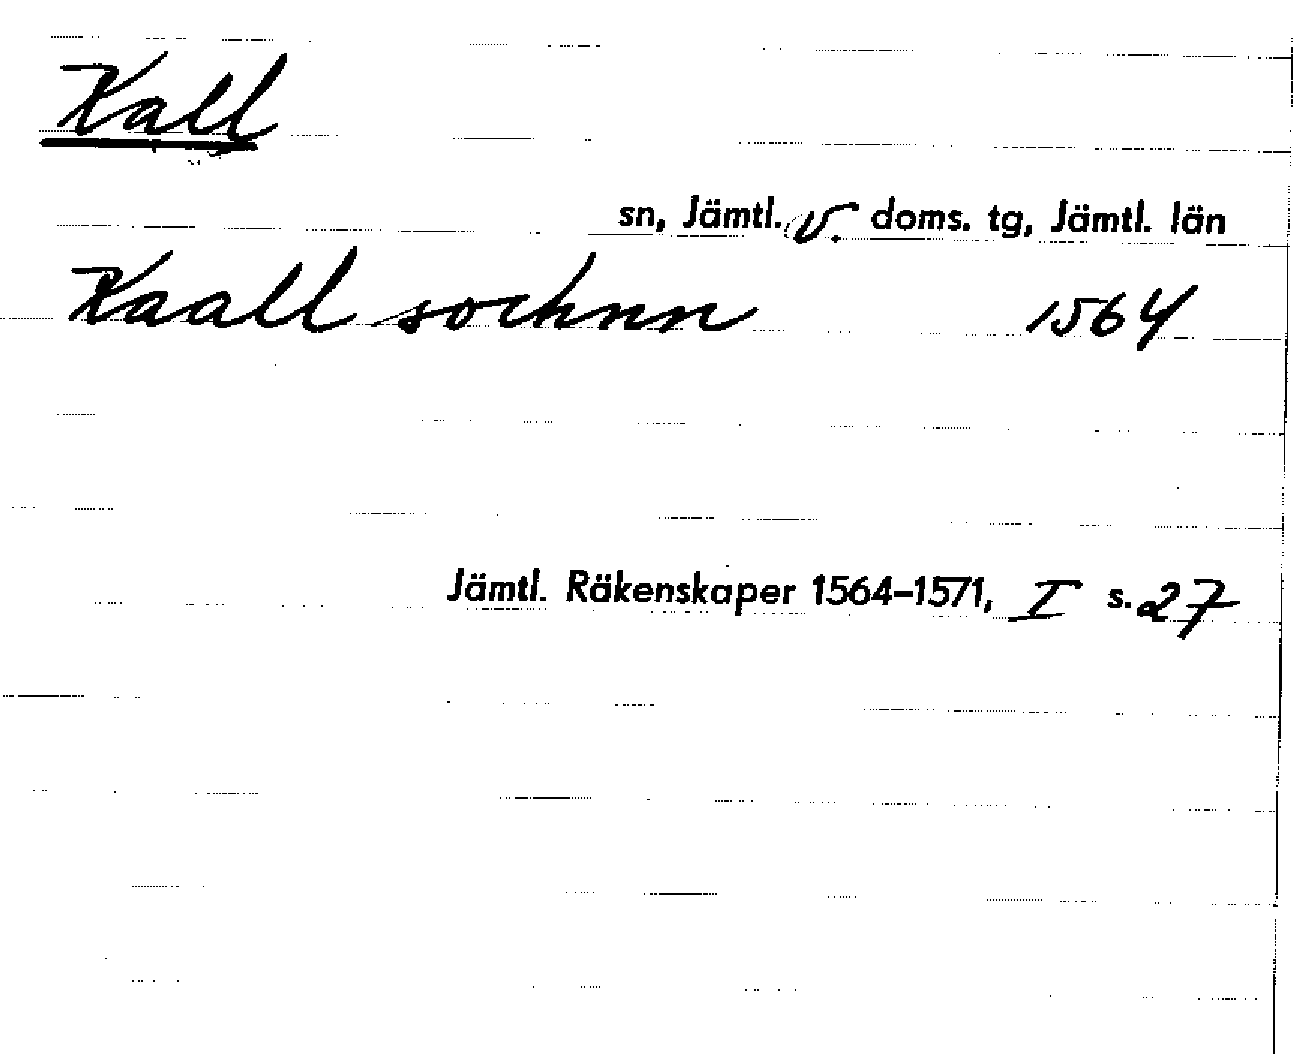 Kall
sn, Jämtl. v. doms. tg, Jämtl. län
Kaall sochnn 1564
Jämtl. Räkenskaper 1564–1571, I s. 27